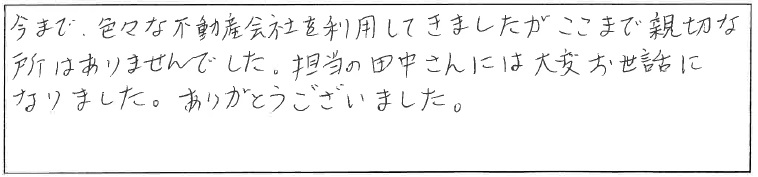 今まで、色々な不動産会社を利用してきましたがここまで親切な
所はありませんでした。担当の田中さんには大変お世話に
なりました。ありがとうございました。